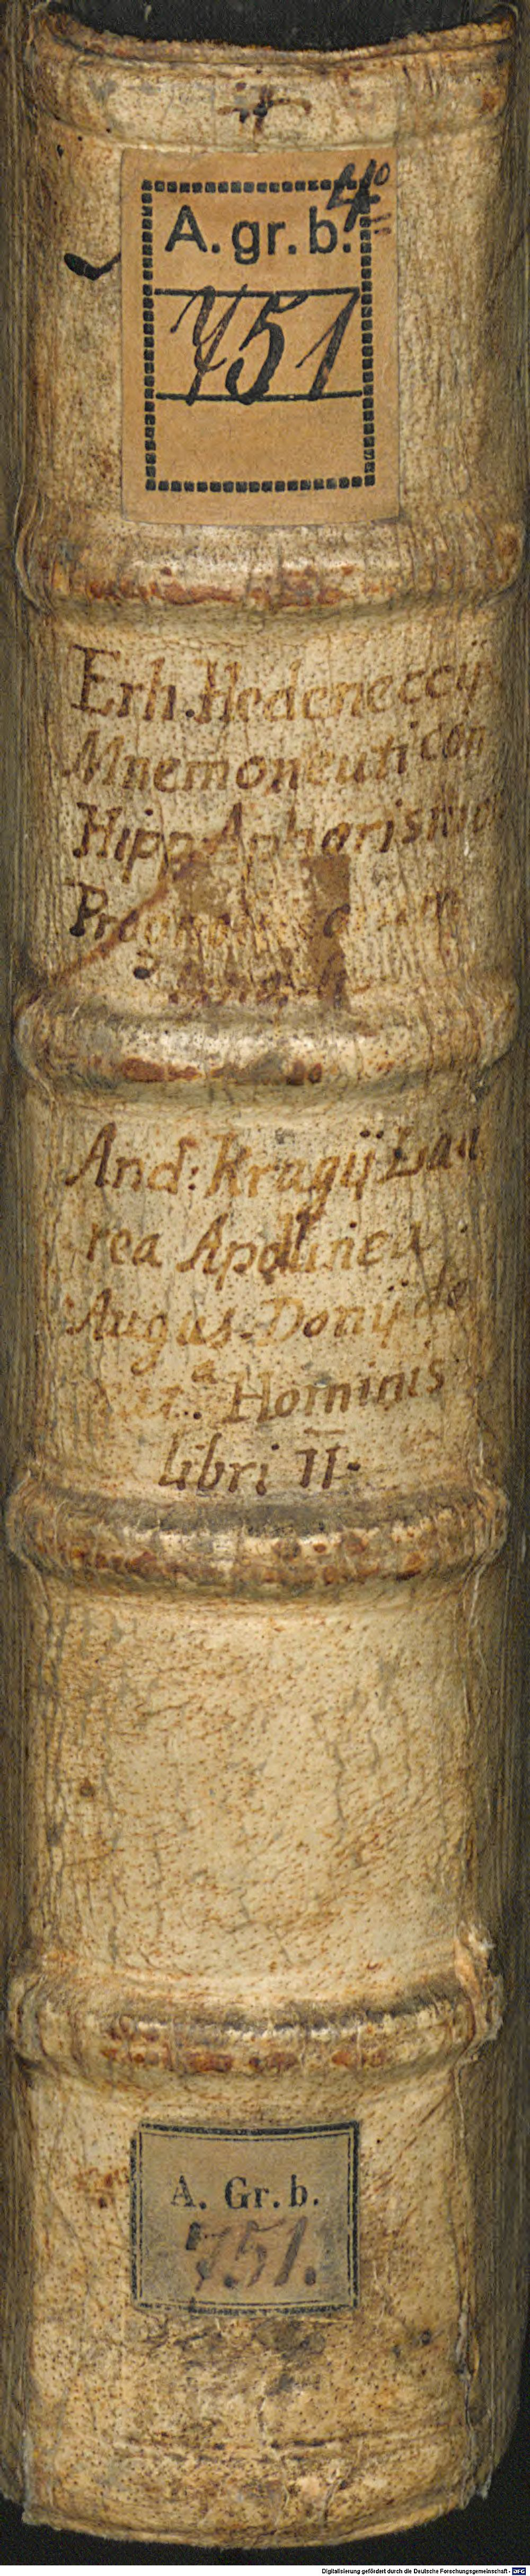 4°
A. gr. b.
751
Erh. Hedeneccij
Mnemoneuticon
Hipp. Aphorismo
And: Kragij Lau
rea Apollinea
Augus. Donij de
Hominis
libri II.
A. Gr. b.
751.
Digitalisierung gefördert durch die Deutsche Forschungsgemeinschaft - DFG